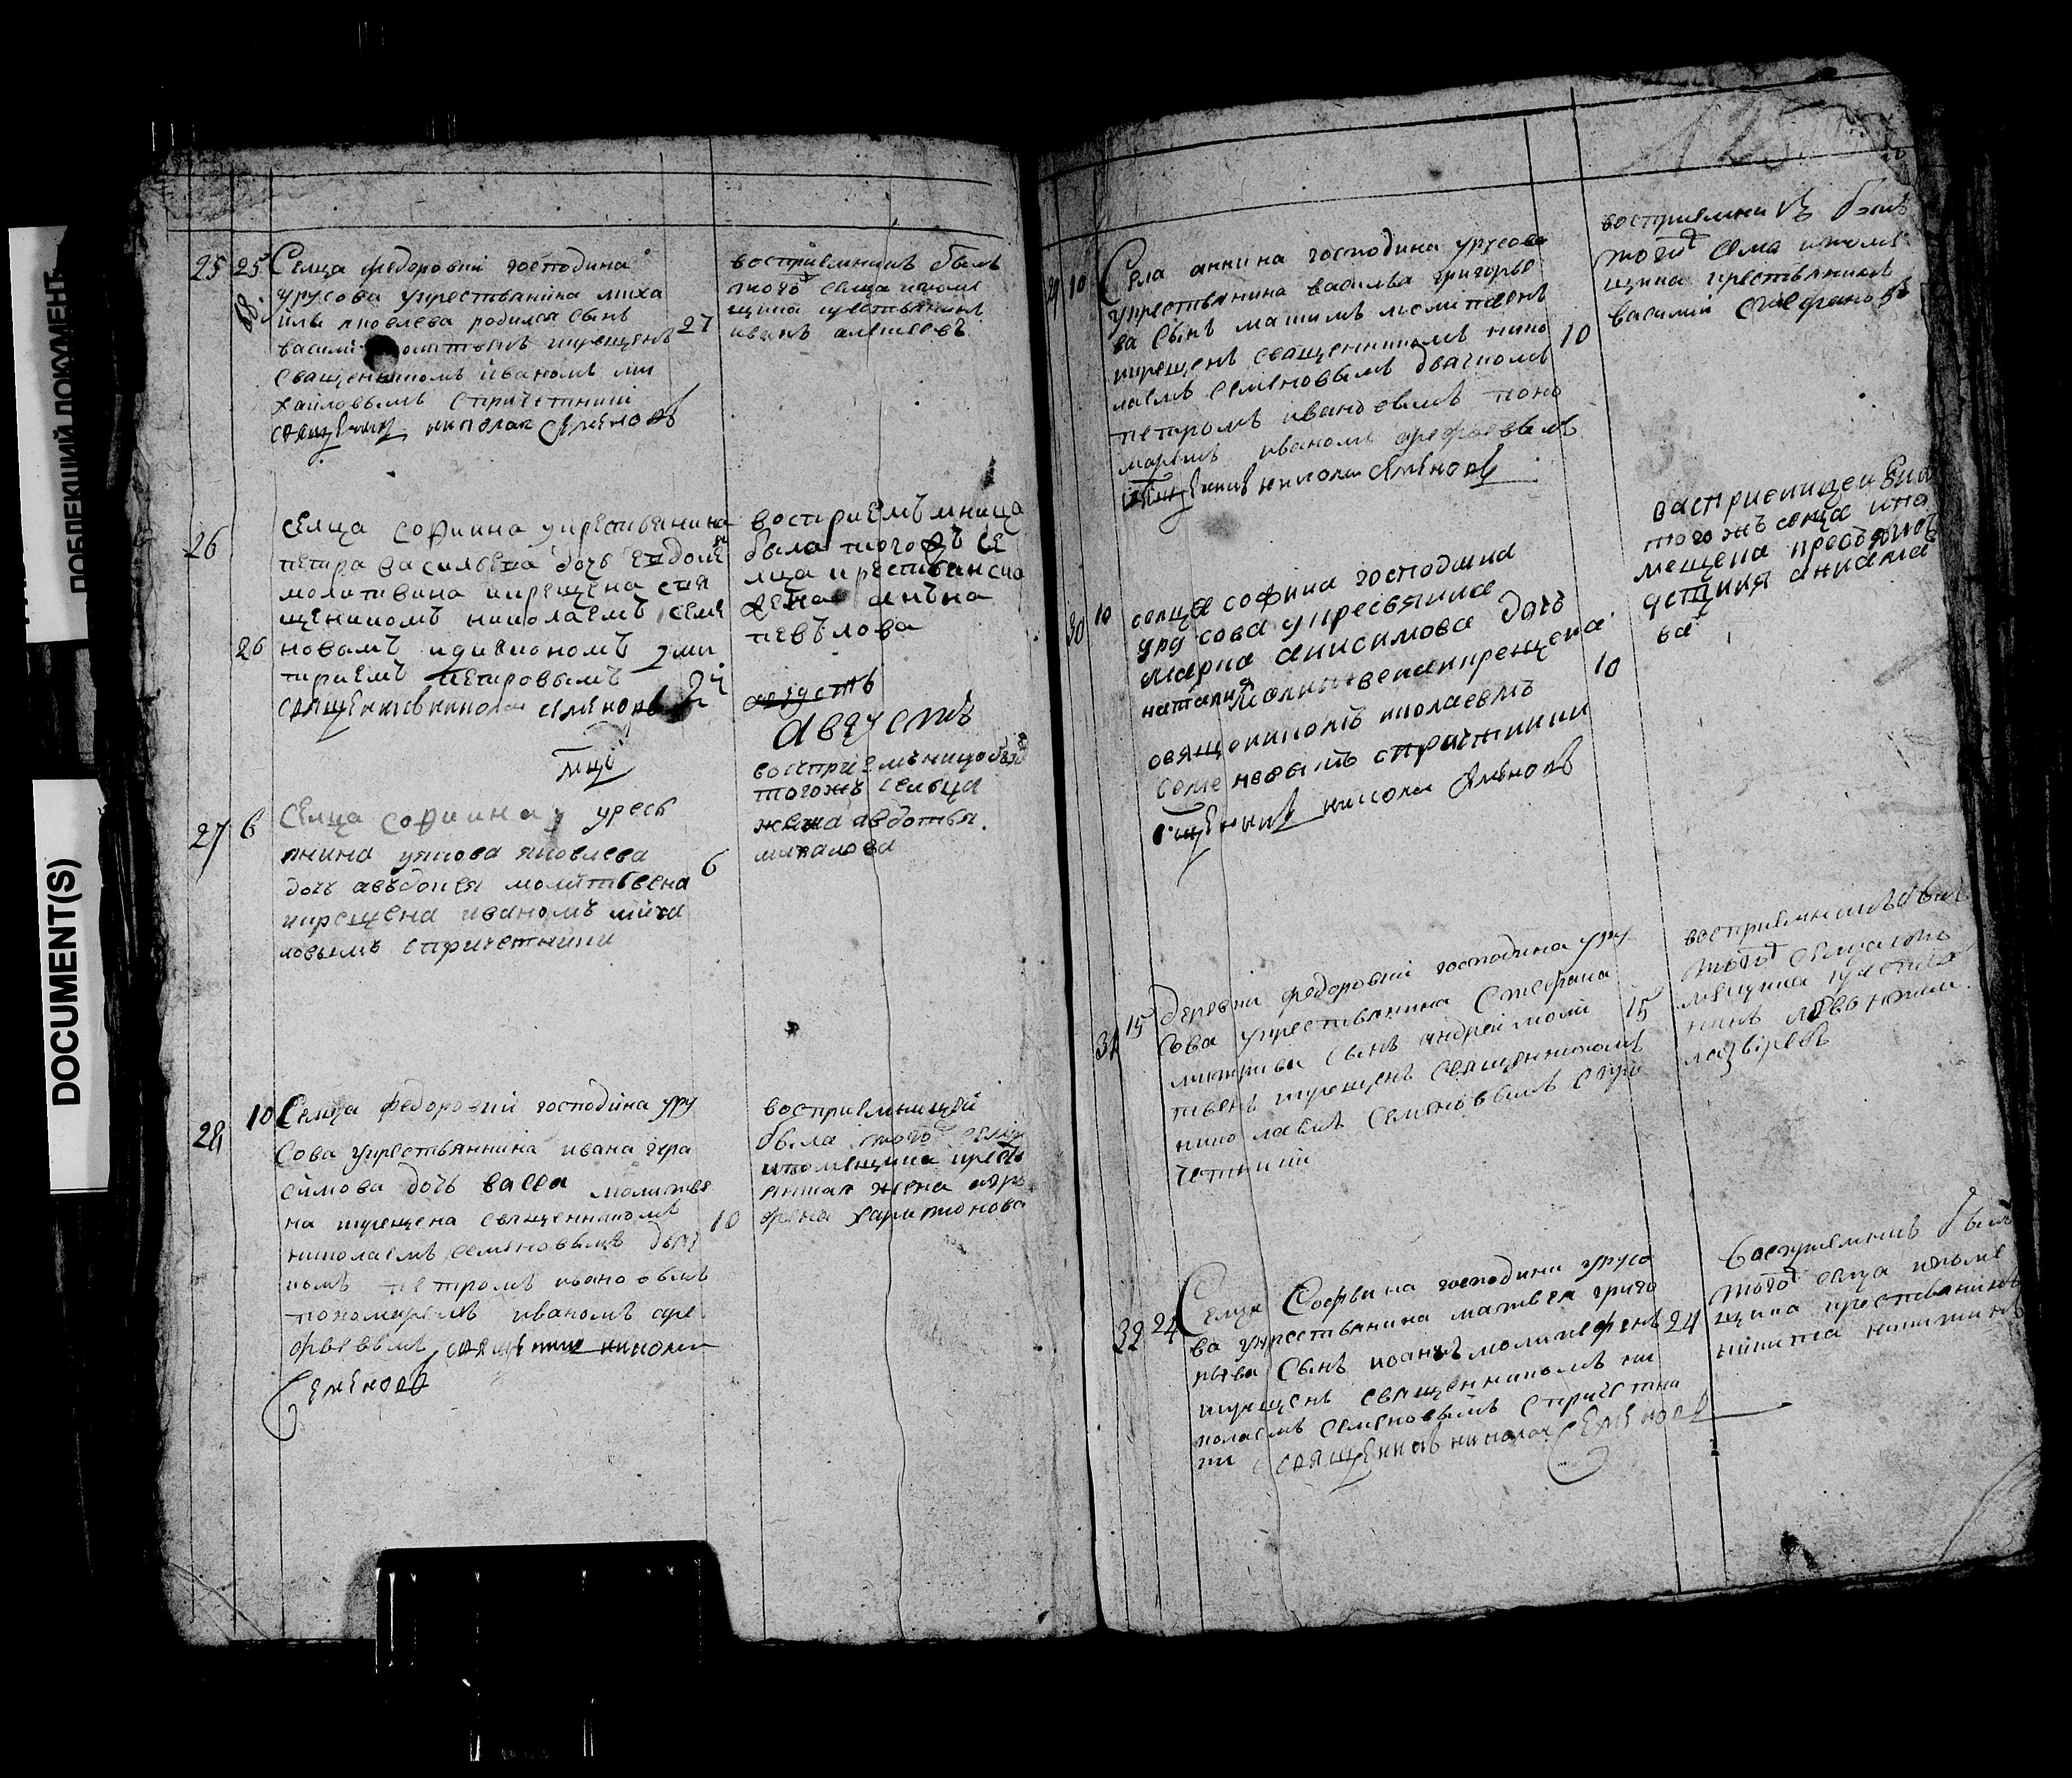 ПОБЛЕКШИЙ ДОКУМЕНТ
DOCUMENT(S)
25 25 Селца федоровки господина
урусова укрестьянина миха
йлы яковлева родился сынъ
василі молитвенъ икрещенъ 27
священникомъ иваномъ ми
хайловымъ спричетники
священникъ николай Семеновъ
восприемникъ былъ
тогожъ селца ипоме
щика крестьянинъ
иванъ алексеевъ
26 селца софиина укрестьянина
петра васильева дочь
молитвина икрещена свя
щеникомъ николаемъ семе
26 новамъ идиякономъ дми
триемъ петровымъ
священникъ николай семеновъ
восприемъмница
была тогожъ се
лца крестьянска
жена анъна
августъ
августъ
27 6 Селца софиина укресь
янина уякова яковлева
дочь авъдотея молитвена 6
икрещена иваномъ миха
ловымъ спричетники
восприемъница
тогожъ сельца
жена авдотья
михалова
28 10 Селца федоровки господина уру
сова укрестьяннина ивана гера
симова дочь васса молитве
на икрещена священникомъ 10
николаемъ семеновымъ дьяч
комъ петромъ ивановымъ
пономаремъ иваномъ аре
фьевымъ священникъ николай
Семеновъ
восприемницей
была тогожъ селца
ипомещика кресть
янская жена
харитонова
125
10 Села аннина господина урусова
укрестьянина василья григорье
ва сынъ максимъ молитвенъ
икрещенъ священникомъ нико 10
лаемъ семеновымъ дьячкомъ
петромъ ивановымъ поно
маремъ иваномъ арефьевымъ
священникъ николай семеновъ
восприемникъ былъ
тогожъ села ипоме
щика крестьянинъ
василий стефановъ
30 10 селца софина господина
урусова укресьянина
марка анисимова дочь
наталия молитвена икрещена 10
священикомъ николаемъ
семеновымъ спричетники
священникъ николай семеновъ
тогожъ селца ипо
мещека
31 15 деревни федоровки господина уру
сова укрестьянина стефана
дмитриева сынъ андрей моли 15
твенъ икрещенъ священникомъ
николаемъ семеновымъ спри
четники
восприемникъ былъ
тогожъ селца ипо
мещика крестья
нинъ
32 24 Селца Софьина господина урусо
ва укрестьянина матвея григо
рьева сынъ иоанъ молитвенъ 24
икрещенъ священникомъ ни
колаемъ семеновымъ спричетни
ки священникъ николай Семеновъ
восприемникъ былъ
тогожъ селца ипоме
щика крестьянинъ
никита никитинъ